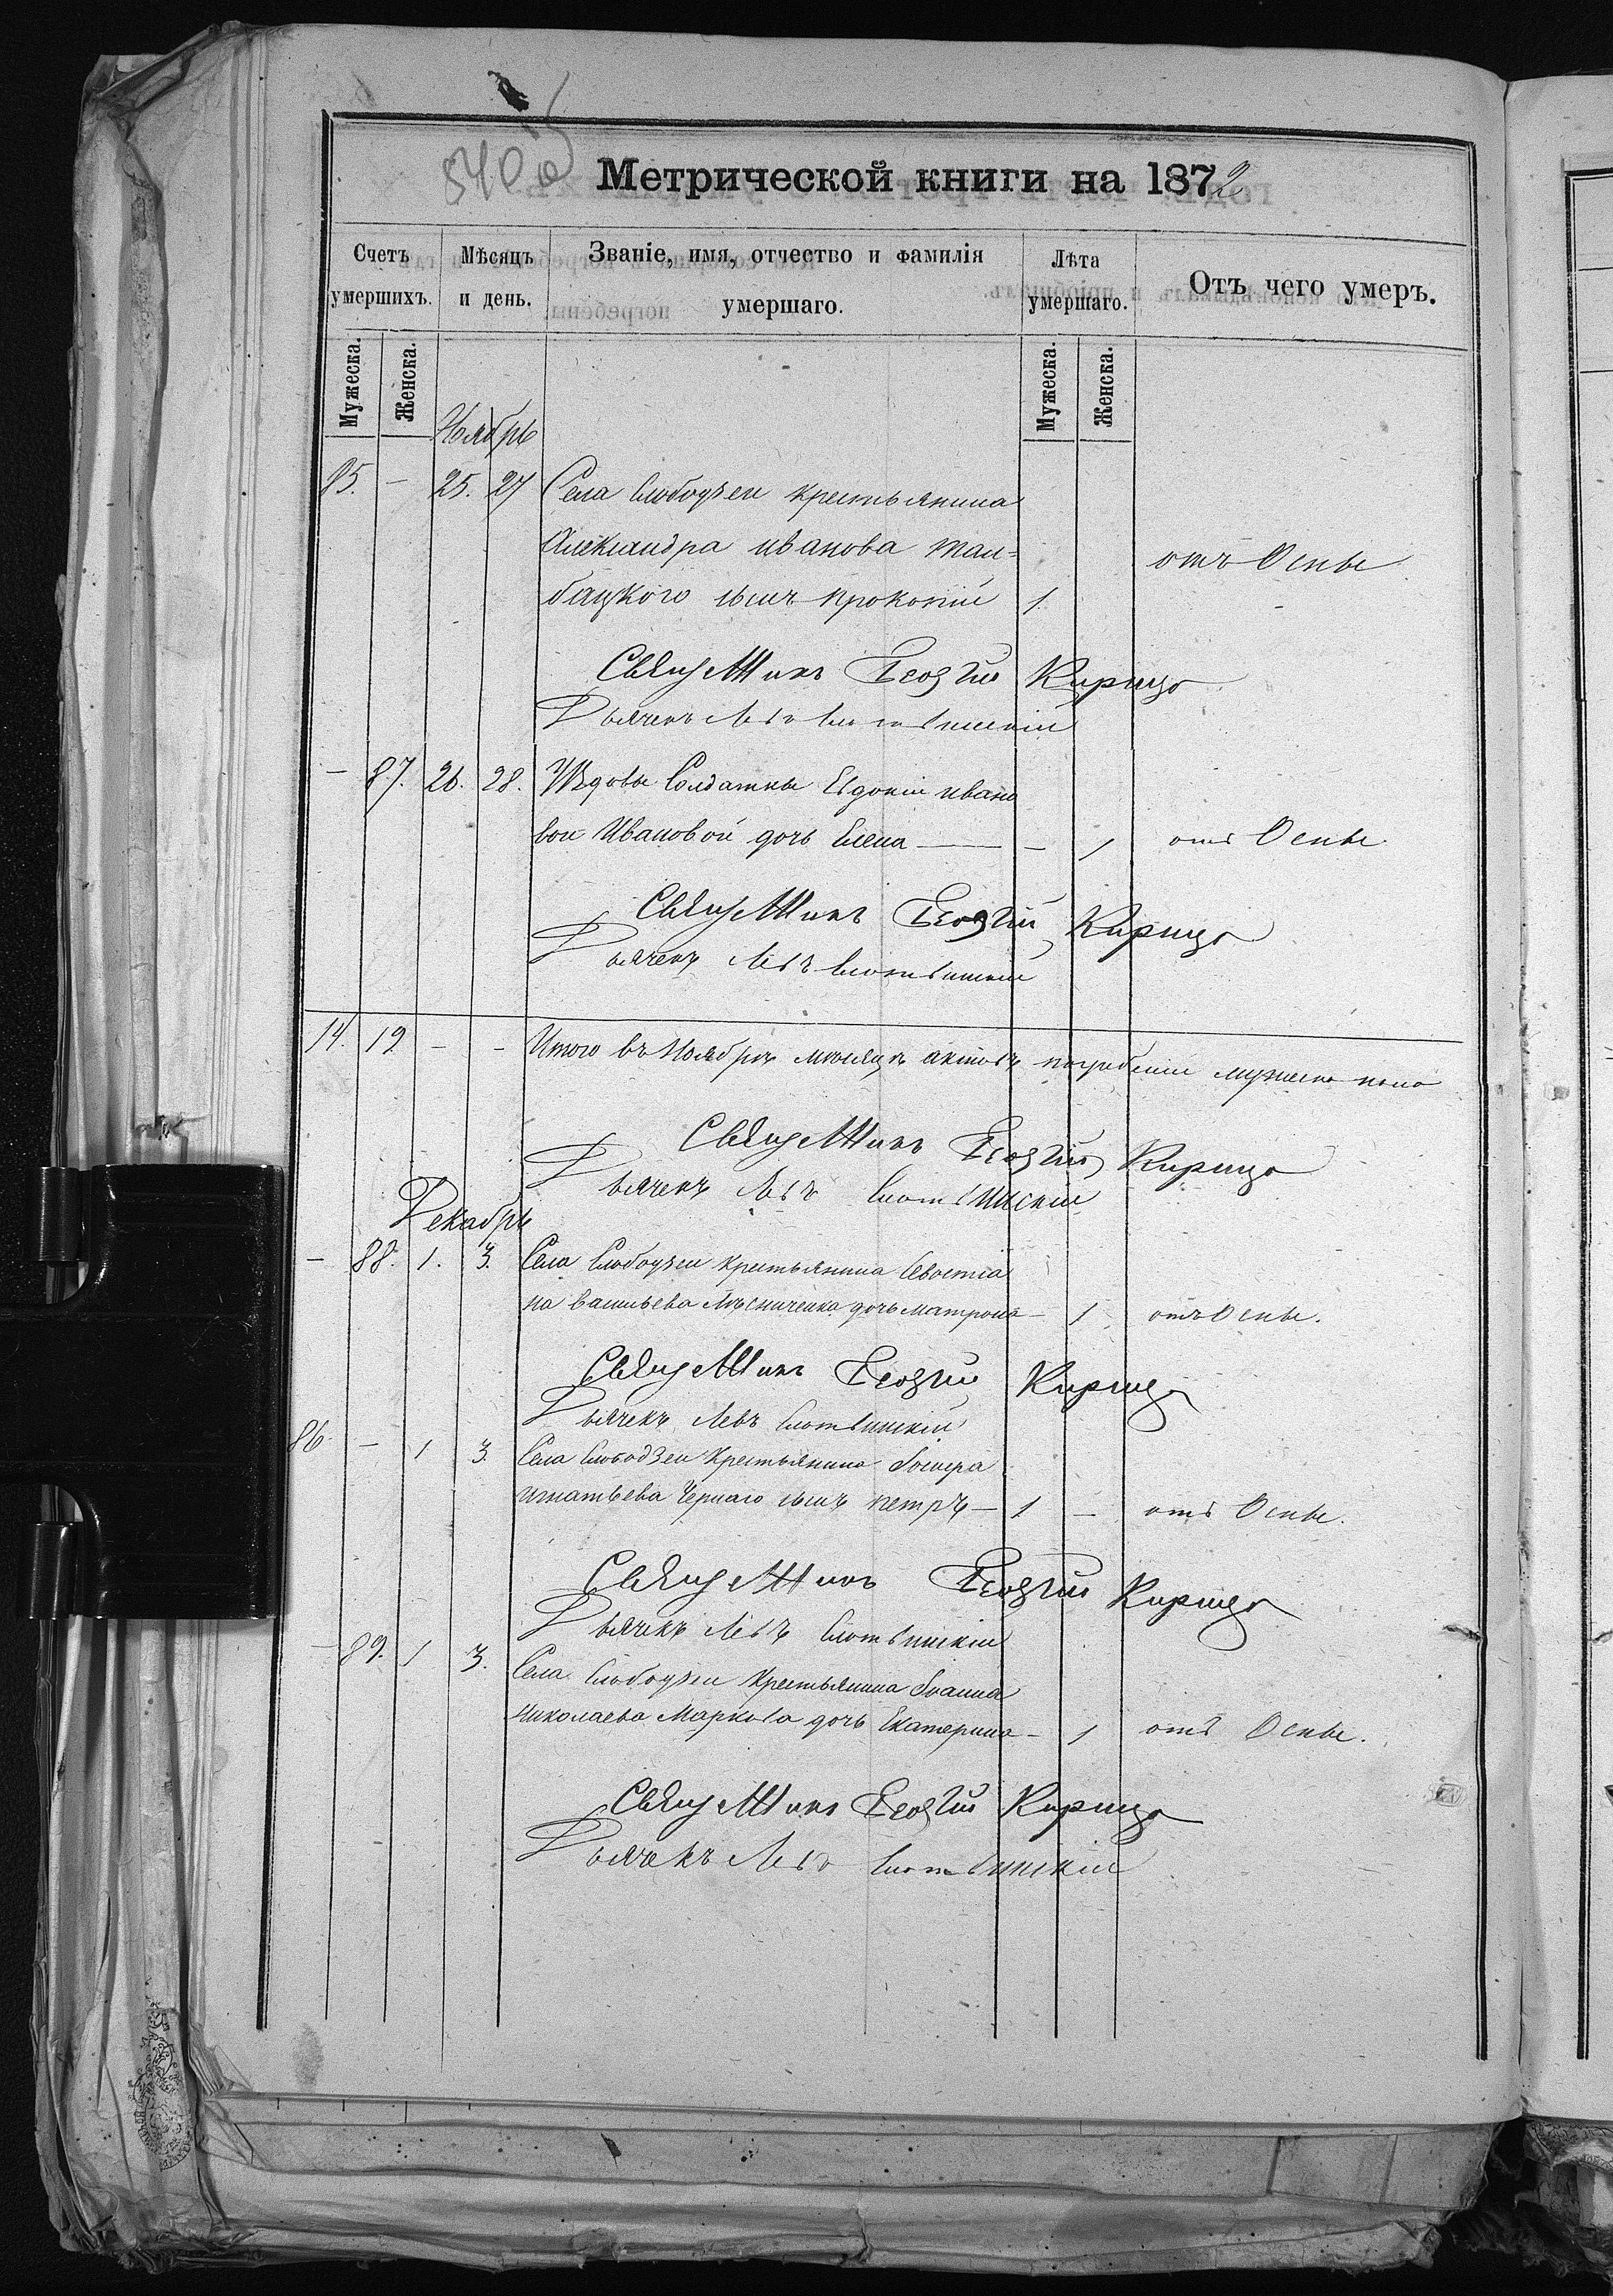 540 об
Метрической книги на 1872
Счетъ умершихъ.
Мѣсяцъ и день.
Званіе, имя, отчество и фамилія умершаго.
Лѣта умершаго.
Отъ чего умеръ.
Мужеска.
Женска.
Мужеска.
Женска.
Ноябрь
85. — 25. 27 Села Слободзеи крестьянина
Александра иванова
сынъ прокопій 1. отъ Оспы
Священникъ Георгій Кирица
Дьячекъ Левъ
— 87. 26. 28. Вдовы Солдатки Евдокіи ивано
вои Ивановой дочь Елена — — 1 отъ Оспы
Священникъ Георгій Кирица
Дьячекъ Левъ
14. 19. — — Итого въ Ноябрѣ мѣсяцѣ актовъ погребеніи мужеска пола
Священникъ Георгій Кирица
Дьячекъ Левъ
Декабрь
— 88. 1. 3. Села Слободзеи крестьянина Севостіа
на васильева дочь матрона — 1 отъ Оспы.
Священникъ Георгій Кирица
Дьячекъ Левъ
86. — 1 3. Села Слободзеи Крестьянина
игнатьева Чернаго сынъ петръ — 1 — отъ Оспы.
Священникъ Георгій Кирица
Дьячекъ Левъ
— 89. 1 3. Села Слободзеи Крестьянина Іоанна
Николаева Маркова дочь Екатерина — 1 отъ Оспы.
Священникъ Георгій Кирица
Дьячекъ Левъ